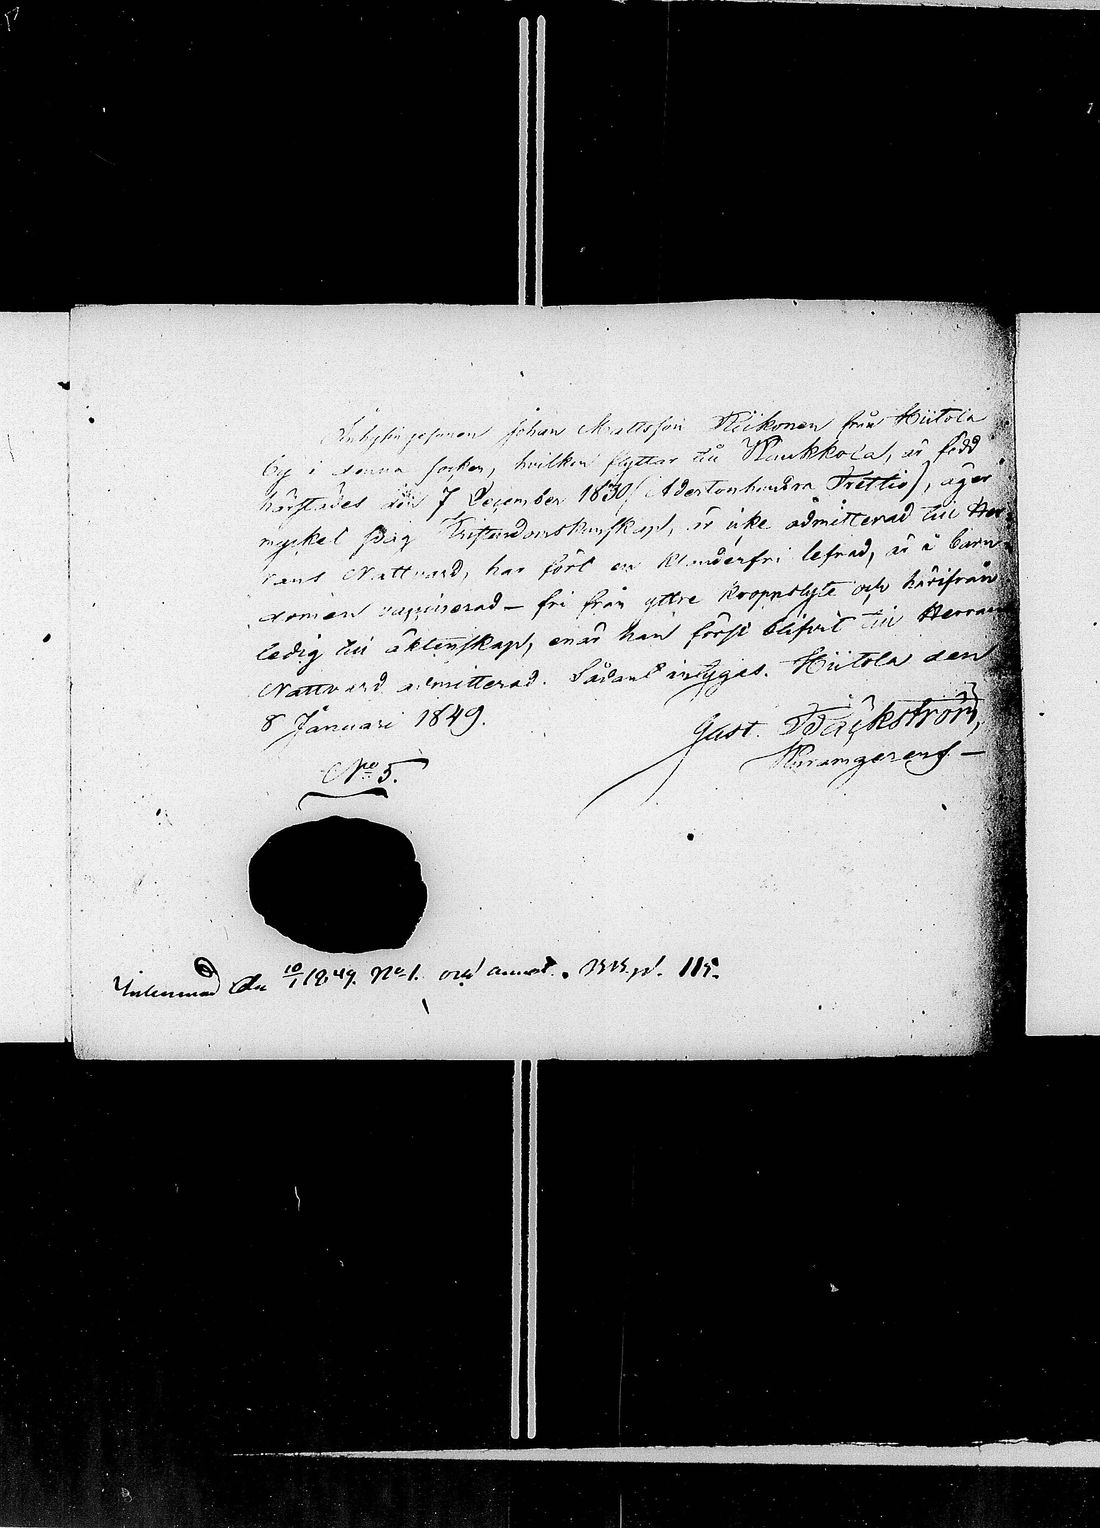 Inhysingesonen Johan Mattsson Riikonen från Hiitola
by i denna socken, hvilken flyttar till Kaukkola, är född
härstädes den 7 December 1830 (Adertonhundra Trettio), äger
mycket svag Christendomskunskap, är icke admitterad till Her-
rans Nattvard, har fört en klanderfri lefnad, är i barn-
domen vaccinerad – fri från yttre kroppslyte och härifrån
ledig till äktenskap, enär han först blifvit till Herrans
Nattvard admitterad. Sådant intygas. Hiitola den
8 Januari 1849.
Gust. Bäckström,
No 5.
Inlemnad den 10/1 1849. No 1. och annot. pd. 115.